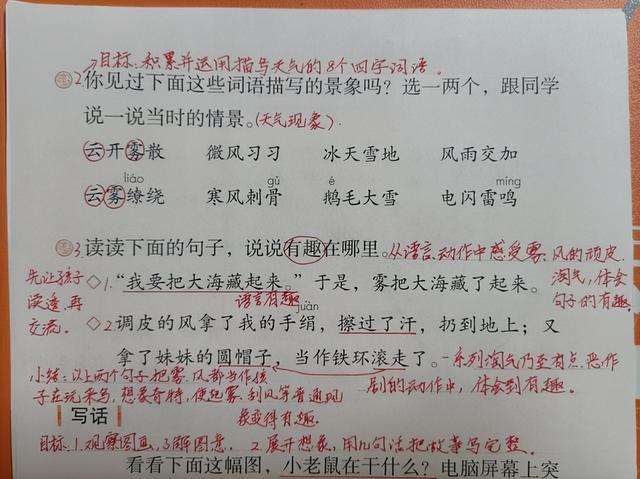 目标：积累并运用描写天气的8个四字词语。
2.你见过下面这些词语描写的景象吗？选一两个，跟同学
说一说当时的情景。(天气现象).
云开雾散 微风习习 冰天雪地 风雨交加
liáo gǔ é míng
云雾缭绕 寒风刺骨 鹅毛大雪 电闪雷鸣
3.读读下面的句子，说说有趣在哪里。从语言、动作中感受雾、风的顽皮、
淘气，体会
句子的有趣。
先让孩子
读透，再
交流。
◇1.“我要把大海藏起来。”于是，雾把大海藏了起来。
语言有趣
juàn
◇2.调皮的风拿了我的手绢，擦过了汗，扔到地上；又
拿了妹妹的圆帽子，当作铁环滚走了。一系列淘气乃至有点恶作
剧的动作中，体会到有趣。
小结：以上两个句子把雾、风都当作孩
子在玩来写，想象奇特，使起雾、刮风等普通现
象变得有趣.
写话
目标：1.观察图画，了解图意. 2.展开想象，用几句话把故事写完整。
看看下面这幅图，小老鼠在干什么？电脑屏幕上突